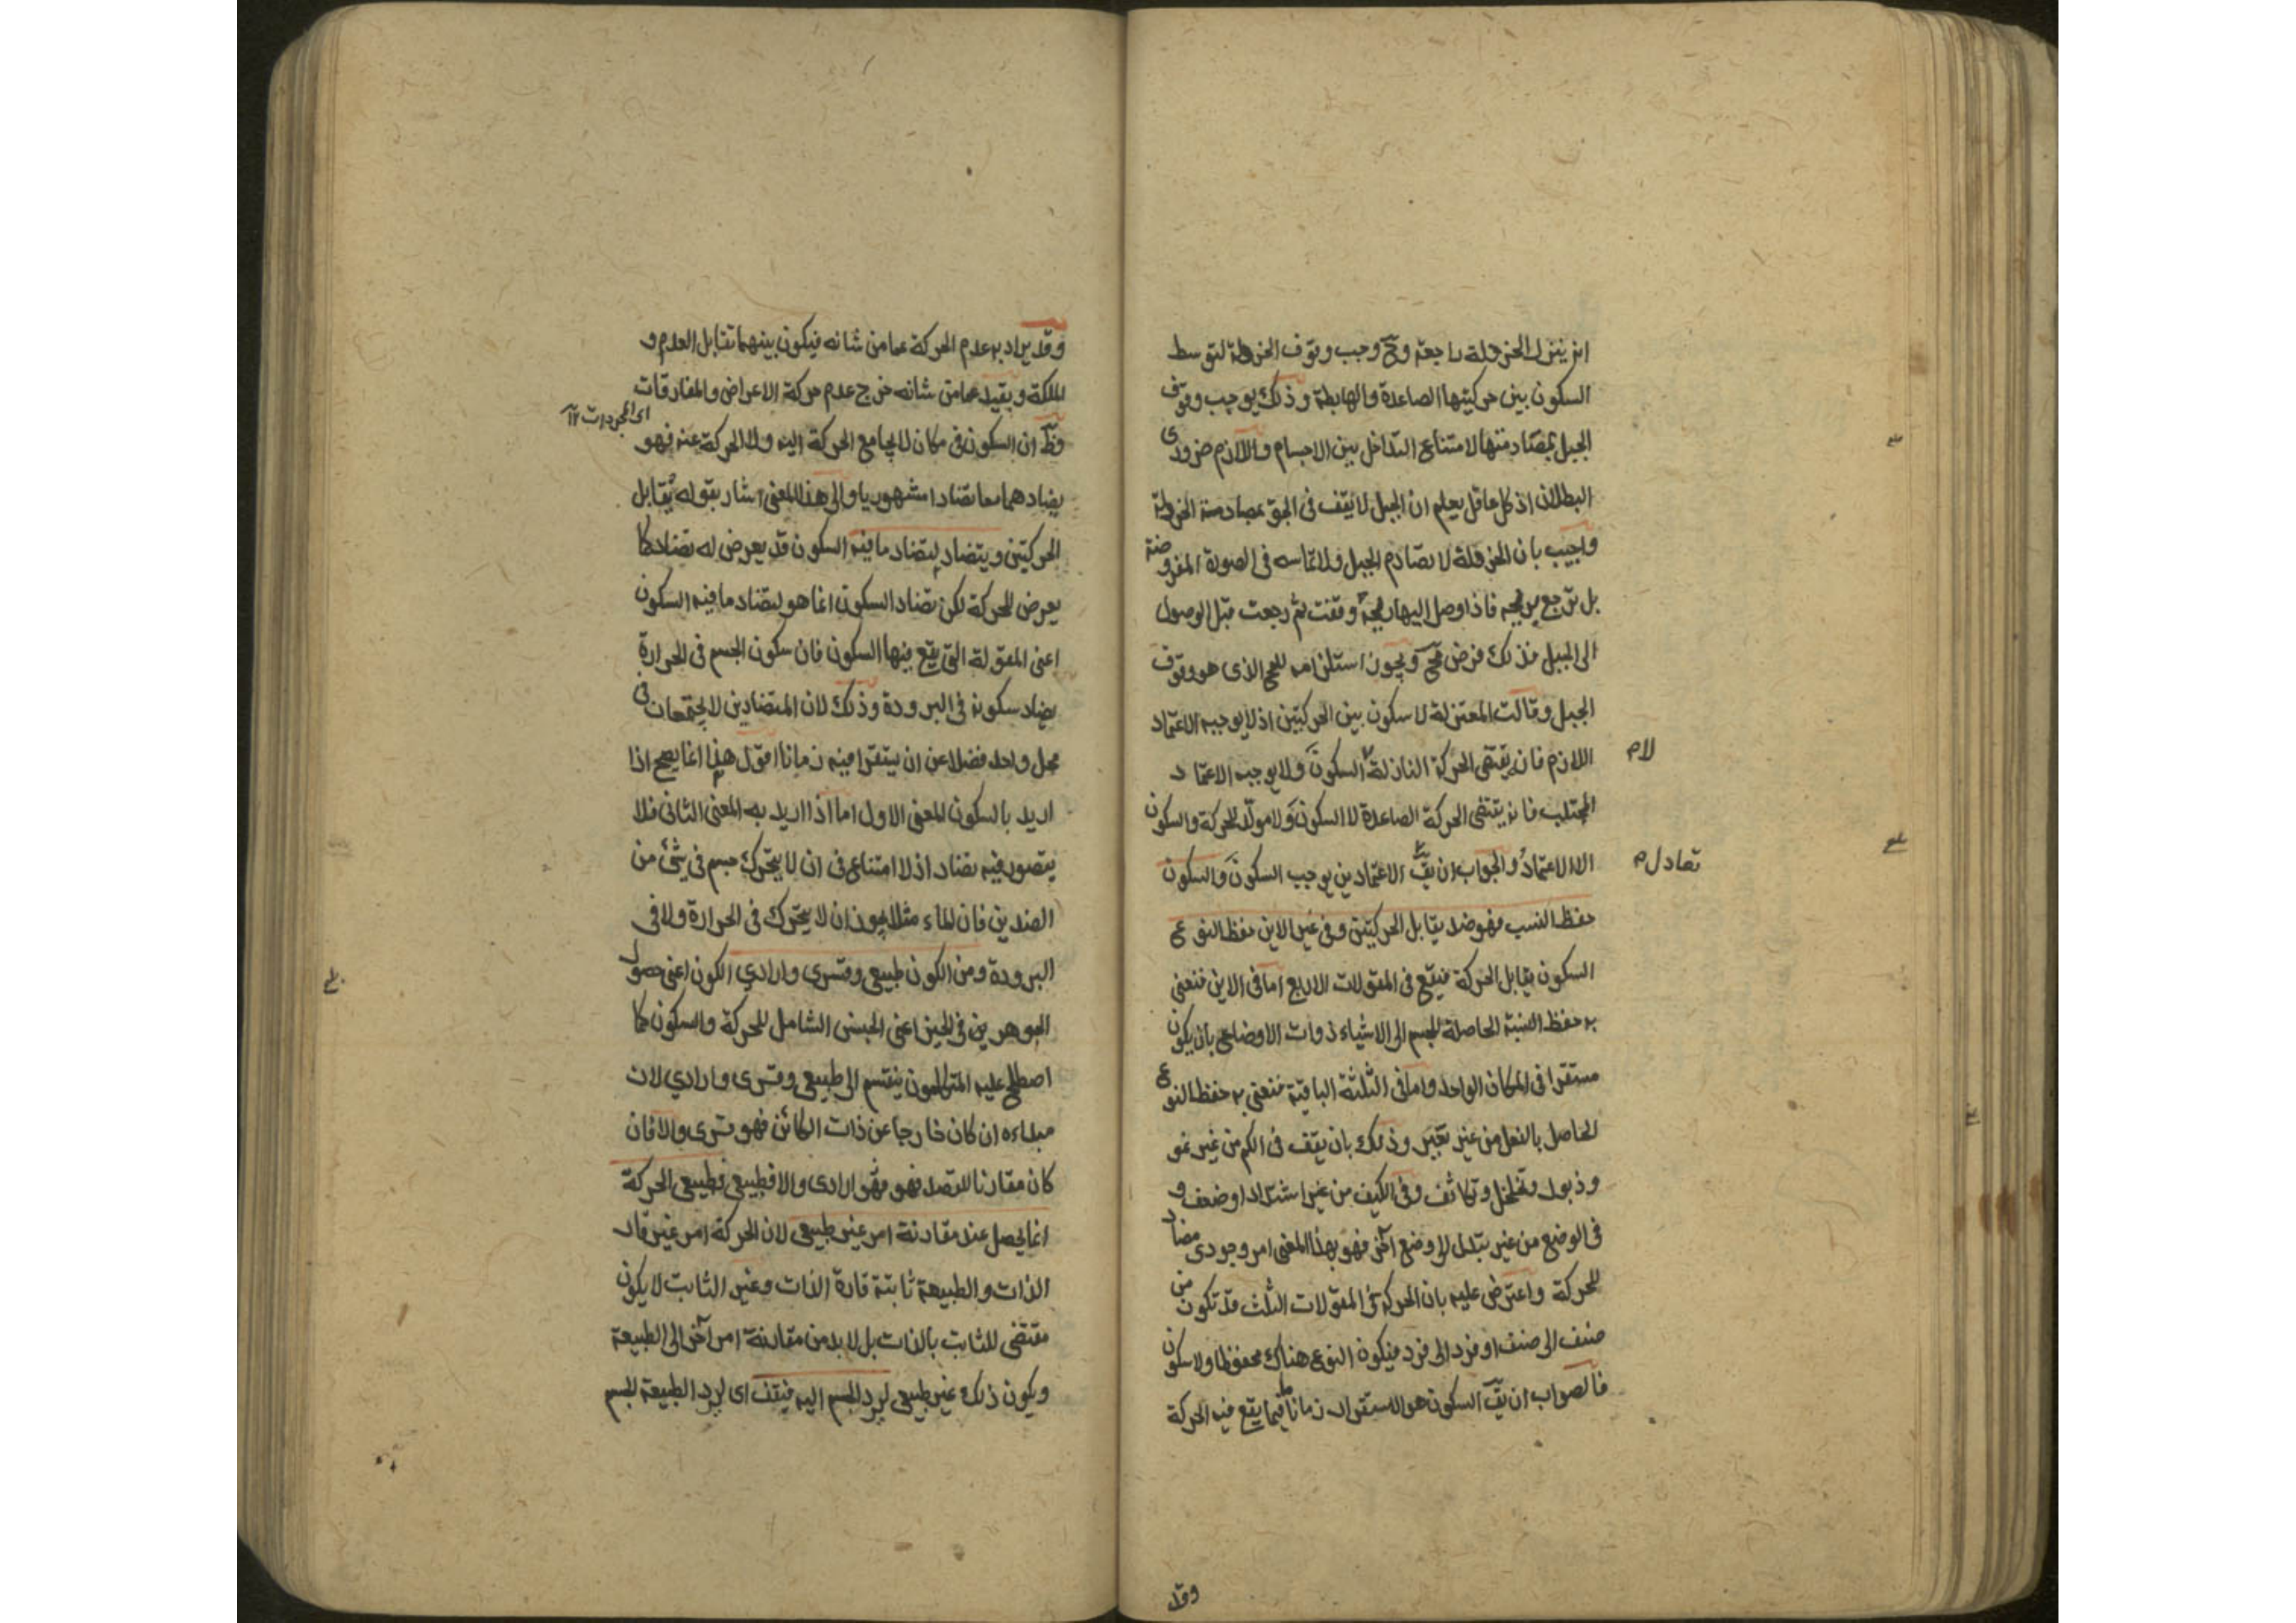 ان ينزل الخردلة راجعة وح وجب وقوف الخردلة لتوسط
السكون بين حركتيها الصاعدة والهابطة وذلك يوجب وقوف
الجبل بمصادمتها لامتناع التداخل بين الاجسام واللازم ضروري
البطلان اذ كل عاقل يعلم ان الجبل لا يقف في الجو بمصادمة الخردلة
واجيب بان الخردلة لا تصادم الجبل ولا تماسه في الصورة المفروضة
بل ترجع بريحه فاذا وصل اليها ريحه وقفت ثم رجعت قبل الوصول
الى الجبل فذلك فرض مح ويجوز استلزامه للمح الذي هو وقوف
الجبل وقالت المعتزلة لا سكون بين الحركتين اذ لا يوجبه الاعتماد
اللازم فانه يقتضي الحركة النازلة لا السكون ولا يوجبه الاعتماد
لام
المجتلب فانه يقتضي الحركة الصاعدة لا السكون ولا مولد للحركة والسكون
الا الاعتماد والجواب ان يق الاعتمادين يوجب السكون والسكون
تعادل م
حفظ النسب فهو ضد يقابل الحركتين وفي غير الاين حفظ النوع
السكون يقابل الحركة فيقع في المقولات الاربع اما في الاين فنعني
به حفظ النسبة الحاصلة للجسم الى الاشياء ذوات الاوضاع بان يكون
مستقرا في المكان الواحد واما في الثلثة الباقية فنعني به حفظ النوع
الحاصل بالفعل من غير تغير وذلك بان يقف في الكم من غير نمو
وذبول وتخلخل وتكاثف وفي الكيف من غير اشتداد وضعف و
في الوضع من غير تبدل الى وضع آخر فهو بهذا المعنى امر وجودي مضاد
للحركة واعترض عليه بان الحركة في المقولات الثلث قد تكون من
صنف الى صنف او فرد الى فرد فيكون النوع هناك محفوظا ولا سكون
فالصواب ان يق السكون هو الاستقرار زمانا فيما يقع فيه الحركة
وقد
وقد يراد به عدم الحركة عما من شانه فيكون بينهما تقابل العدم و
الملكة وبقيد عما من شانه خرج عدم حركة الاعراض والمفارقات
اى المجردات ١٢
وظ ان السكون في مكان لا يجامع الحركة اليه ولا الحركة عنه فهو
يضادهما معا تضادا مشهوريا والى هذا المعنى اشار بقوله يقابل
الحركتين ويتضاد لتضاد ما فيه السكون قد يعرض له تضاد كما
يعرض للحركة لكن تضاد السكون انما هو لتضاد ما فيه السكون
اعني المقولة التي يقع فيها السكون فان سكون الجسم في الحرارة
يضاد سكونه في البرودة وذلك لان المتضادين لا يجتمعان في
محل واحد فضلا عن ان يستقرا فيه زمانا اقول هذا انما يصح اذا
اريد بالسكون المعنى الاول اما اذا اريد به المعنى الثاني فلا
يتصور فيه تضاد اذ لا امتناع في ان لا يتحرك جسم في شئ من
الضدين فان الماء مثلا يجوز ان لا يتحرك في الحرارة ولا في
البرودة ومن الكون طبيعي وقسري وارادي الكون اعني حصول
الجوهر في الحيز اعني الجنس الشامل للحركة والسكون كما
اصطلح عليه المتكلمون ينقسم الى طبيعي وقسري وارادي لان
مبداءه ان كان خارجا عن ذات الكائن فهو قسري والا فان
كان مقارنا للقصد فهو فهو ارادى والا فطبيعي فطبيعي الحركة
انما يحصل عند مقارنة امر غير طبيعي لان الحركة امر غير قار
الذات والطبيعة ثابتة قارة الذات وغير الثابت لا يكون
مقتضى للثابت بالذات بل لا بد من مقارنة امر آخر الى الطبيعة
ويكون ذلك غير طبيعي ليرد الجسم اليه فيقف اى ليرد الطبيعة الجسم